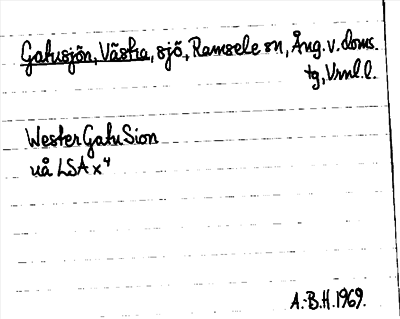 Gatusjön, Västra, sjö, Ramsele sn, Ång. v. doms.
tg, Vrnl.l.
Wester Gatu Sion
uå LSA x⁴
A.-B.H. 1969.